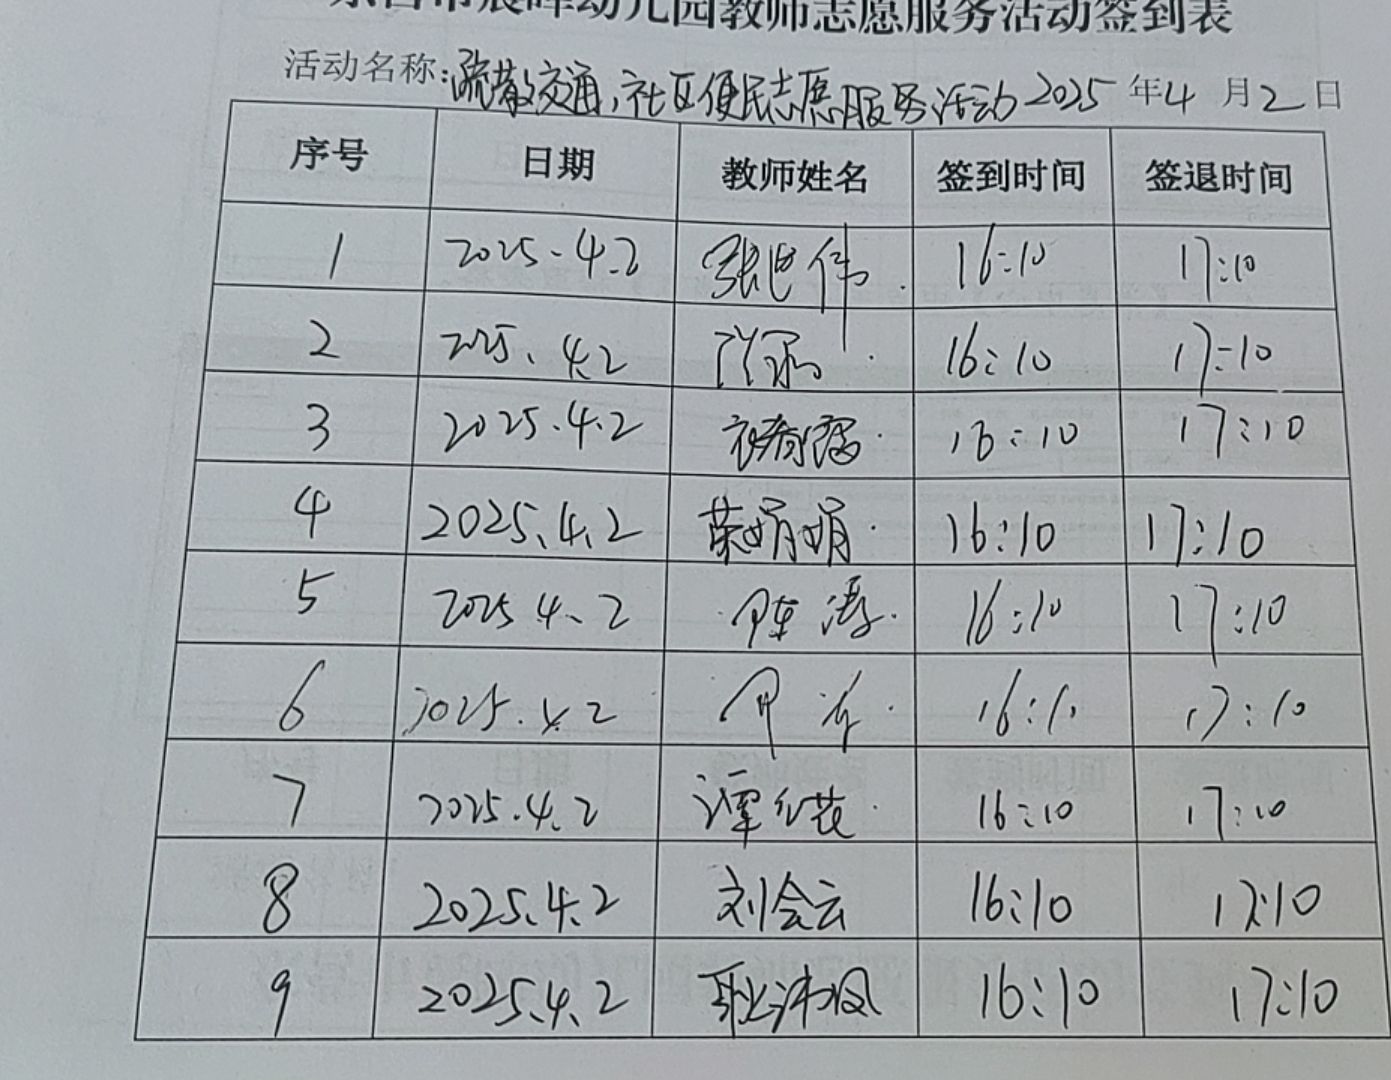 幼儿园教师志愿服务活动签到表
活动名称:疏散交通,社区便民志愿服务活动 2025 年 4 月 2 日
序号 日期 教师姓名 签到时间 签退时间
1 2025.4.2 16:10 17:10
2 2025.4.2 16:10 17:10
3 2025.4.2 16:10 17:10
4 2025.4.2 荣娟娟 16:10 17:10
5 2025.4.2 陈涛 16:10 17:10
6 2025.4.2 17:10
7 2025.4.2 16:10 17:10
8 2025.4.2 刘会云 16:10 17:10
9 2025.4.2 16:10 17:10